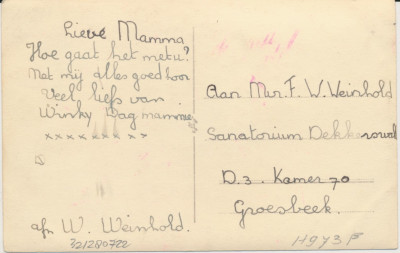 Lieve Mamma
Hoe gaat het met u?
Met mij alles goed hoor
Veel liefs van
Winky Dag mammie
xxxxxxx xx
afz. W. Weinhold.
321280722
Aan Mvr. F. W. Weinhold
Sanatorium Dekkerswal
D.3. Kamer 70
Groesbeek.
H973F